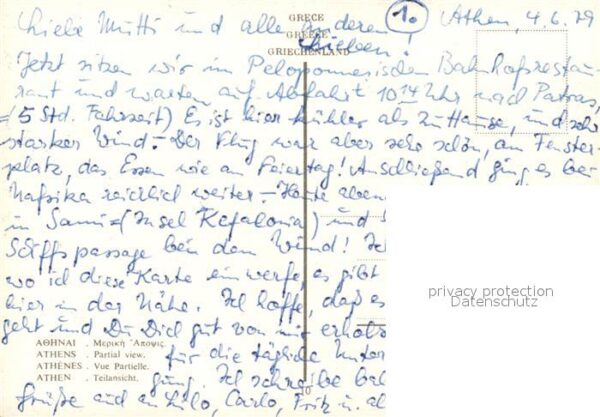 GRECE
GREECE
GRIECHENLAND
1.
Athen, 4.6.79
Liebe Mutti und alle anderen Lieben!
Jetzt sitzen wir im Peloponnesischen Bahnhofsrestau-
rant und warten auf Abfahrt 10 14 Uhr nach Patras,
(5 Std. Fahrzeit) Es ist hier kühler als zu Hause, und sehr
starker Wind. - Der Flug war aber sehr schön, am Fenster-
platz, das Essen wie an Feiertag! Anschließend ging es bei
reichlich weiter. - Heute aben
in Sami (Insel Kefalonia) und
Schiffspassage bei dem Wind!
wo ich diese Karte einwerfe, es gibt
hier in der Nähe. Ich hoffe, daß es
geht und Du Dich gut von mir erholt
für die tägliche Unter
gung. Ich schreibe bal
Grüße auch an Lilo, Carlo, Fritz u. al
privacy protection
Datenschutz
ΑΘΗΝΑΙ . Μερικὴ Ἄποψις.
ATHENS . Partial view.
ATHÈNES . Vue Partielle.
ATHEN . Teilansicht.
10